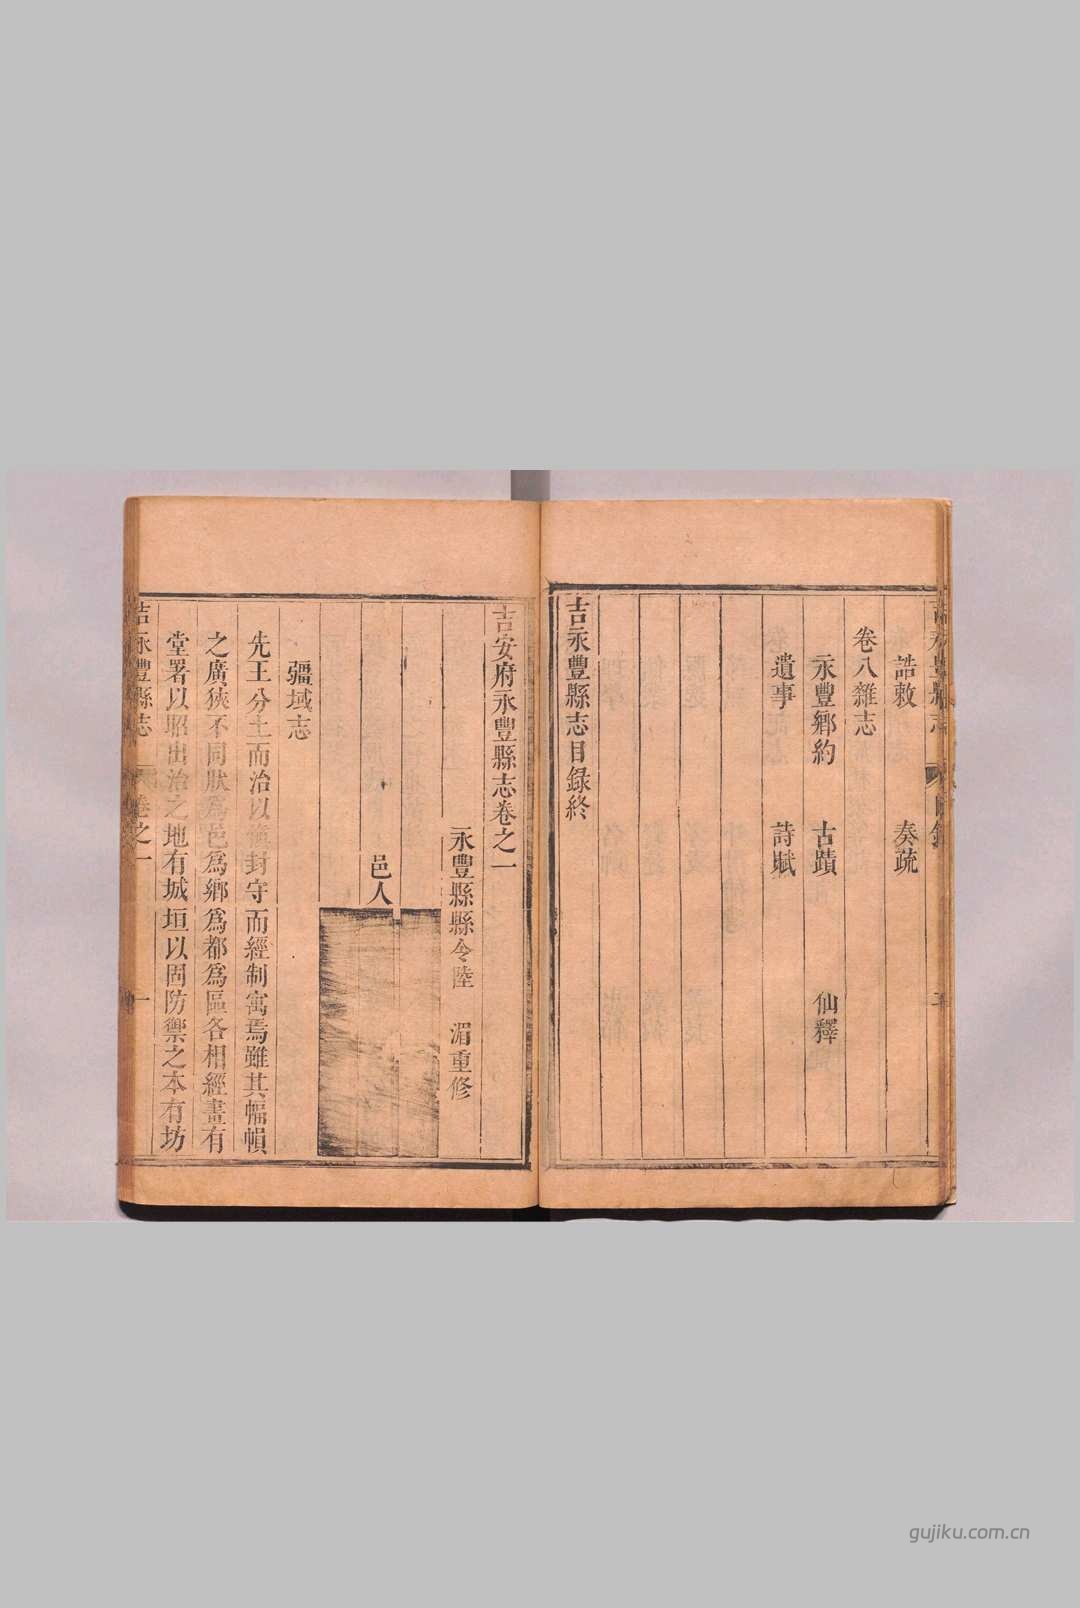 誥敕　奏疏
卷八雜志
永豐鄉約　古蹟　仙釋
遺事　詩賦
吉永豐縣志目錄終
吉安府永豐縣志卷之一
永豐縣縣令陸　湄重修
邑人
疆域志
先王分土而治以 封守而經制寓焉雖其幅幀
之廣狹不同肰爲邑爲鄉爲都爲區各相經畫有
堂署以昭出治之地有城垣以固防禦之本有坊
吉永豐縣志　卷之一　一
gujiku.com.cn